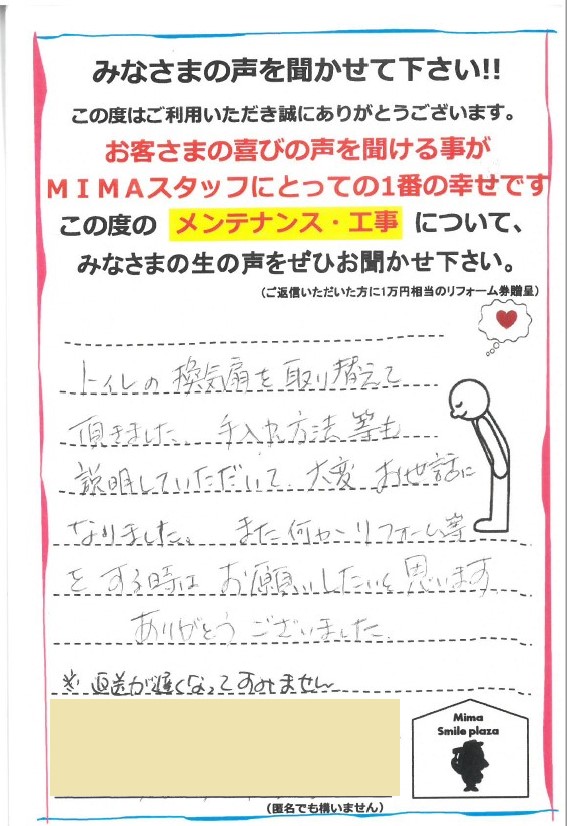 みなさまの声を聞かせて下さい!!
この度はご利用いただき誠にありがとうございます。
お客さまの喜びの声を聞ける事が
ＭＩＭＡスタッフにとっての1番の幸せです
この度の メンテナンス・工事 について、
みなさまの生の声をぜひお聞かせ下さい。
（ご返信いただいた方に1万円相当のリフォーム券贈呈）
トイレの換気扇を取り替えて
頂きました。手入れ方法等も
説明していただいて、大変お世話に
なりました。また何かリフォーム等
をする時はお願いしたいと思います。
ありがとうございました。
※返送が遅くなってすみません
Mima
Smile plaza
（匿名でも構いません）